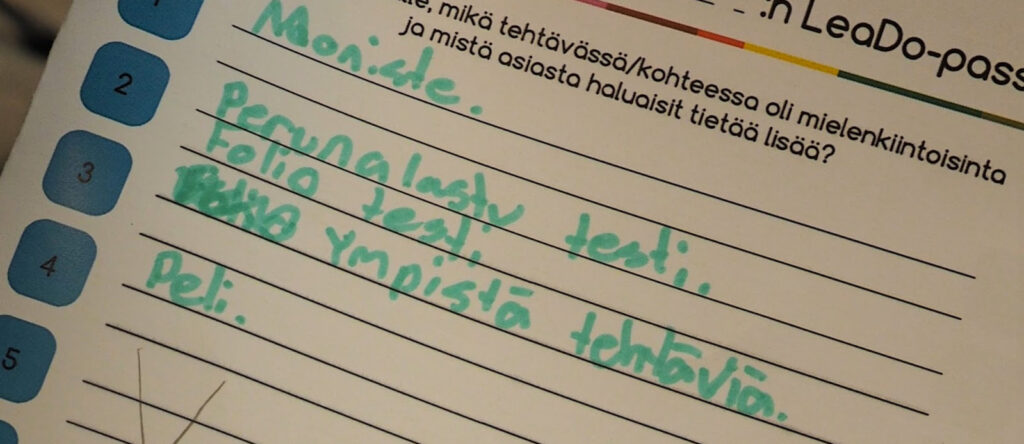 :n LeaDo-pass
mikä tehtävässä/kohteessa oli mielenkiintoisinta
ja mistä asiasta haluaisit tietää lisää?
1
Moniste.
2
Perunalastu testi.
3
Folio testi.
Ympistä tehtäviä.
4
Peli.
5